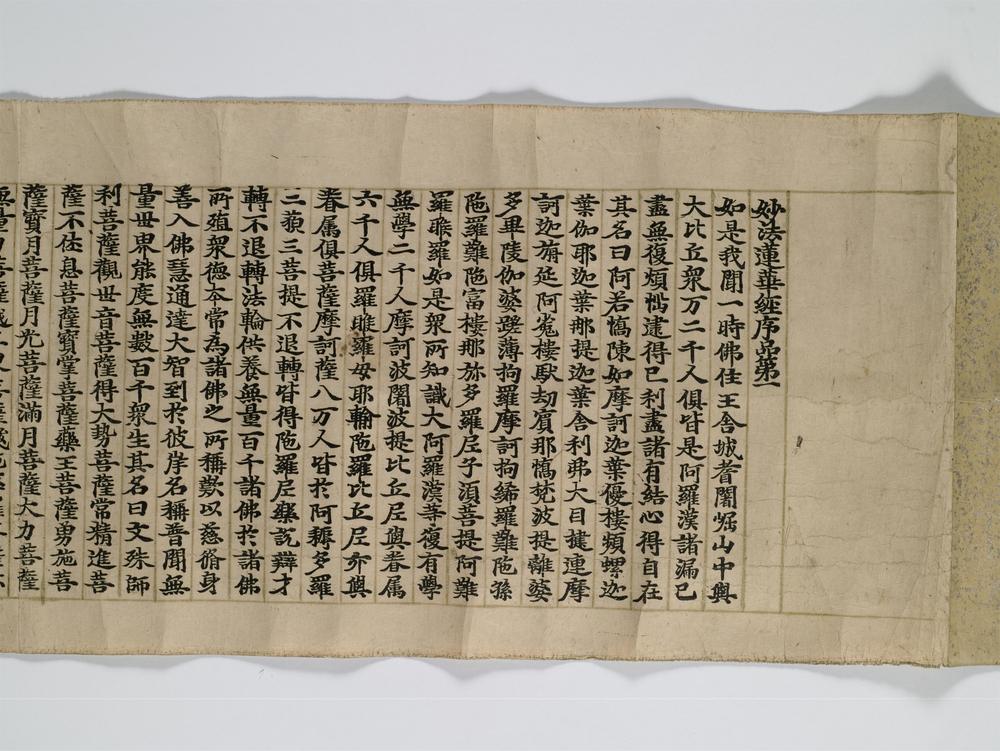 妙法蓮華經序品第一
如是我聞一時佛住王舍城耆闍崛山中與
大比丘衆万二千人俱皆是阿羅漢諸漏已
盡無復煩惱逮得已利盡諸有結心得自在
其名曰阿若憍陳如摩訶迦葉優樓頻螺迦
葉伽耶迦葉那提迦葉舍利弗大目揵連摩
訶迦旃延阿㝹樓馱劫賓那憍梵波提離婆
多畢陵伽婆蹉薄拘羅摩訶拘絺羅難陁孫
陁羅難陁富樓那弥多羅尼子湏菩提阿難
羅睺羅如是衆所知識大阿羅漢等復有學
無學二千人摩訶波闍波提比丘尼與眷属
六千人俱羅睺羅母耶輸陁羅比丘尼亦與
眷属俱菩薩摩訶薩八万人皆於阿耨多羅
三藐三菩提不退轉皆得陁羅尼樂說辯才
轉不退轉法輪供養無量百千諸佛於諸佛
所殖衆德本常為諸佛之所稱歎以慈脩身
善入佛慧通達大智到於彼岸名稱普聞無
量世界能度無數百千衆生其名曰文殊師
利菩薩觀世音菩薩得大勢菩薩常精進菩
薩不休息菩薩寶掌菩薩藥王菩薩勇施菩
薩寶月菩薩月光菩薩滿月菩薩大力菩薩
無量力菩薩